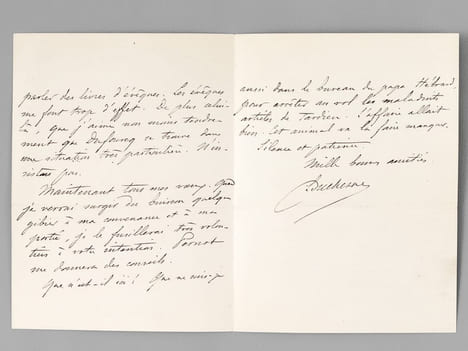 parler des livres d'évêques. Les évêques
me font trop d'effet. De plus celui-
là, que j'aime non moins tendre-
ment que Dufourcq se trouve dans
une situation très particulière. N'in-
sistons pas.
Maintenant tous mes vœux. Quand
je verrai surgir du buisson quelque
gibier à ma convenance et à ma
portée, je le fusillerai très volon-
tiers à votre intention.
me donnera des conseils.
Que n'est-il ici ! Que ne suis-je
aussi dans le bureau du papa Hébrard,
pour arrêter au vol les maladroits
articles de Tardieu. L'affaire allait
bien. Cet animal va la faire manquer.
Silence et patience.
Mille bonnes amitiés
L. Duchesne